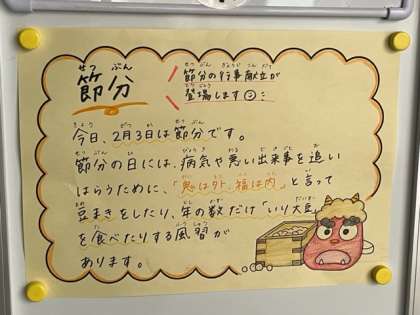 節分
せつ ぶん
節分の行事献立が
せつ ぶん ぎょうじ こん だて
登場します
とうじょう
今日、2月3日は節分です。
節分の日には、病気や悪い出来事を追い
はらうために、「鬼は外、福は内」と言って
豆まきをしたり、年の数だけ「いり大豆」
を食べたりする風習が
あります。